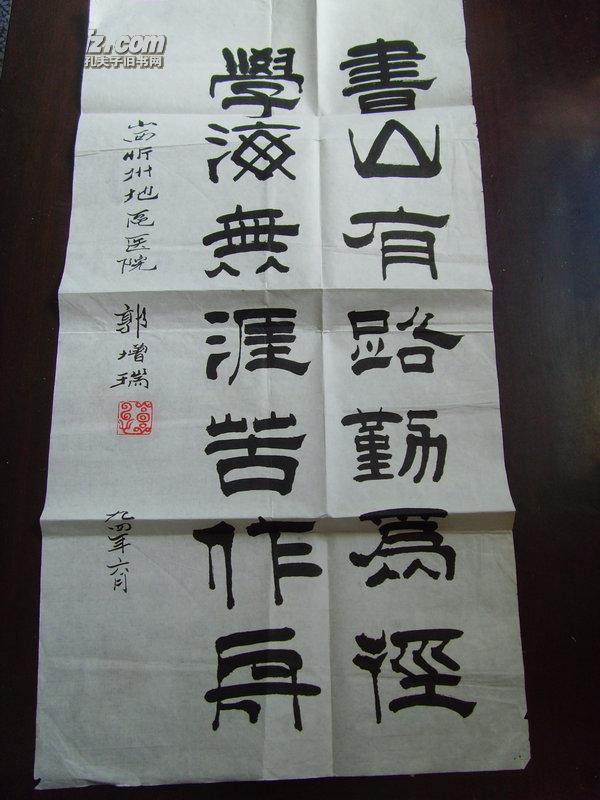 書山有路勤爲徑
學海無涯苦作舟
山西忻州地区医院
郭增瑞
九四年六月
z.com
孔夫子旧书网